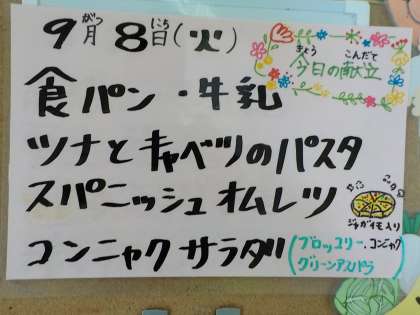 9月8日(火)
がつ にち
きょう こんだて
今日の献立
食パン・牛乳
ツナとキャベツのパスタ
スパニッシュオムレツ
ジャガイモ入り
コンニャクサラダ
(ブロッコリー、コンニャク
グリーンアスパラ)